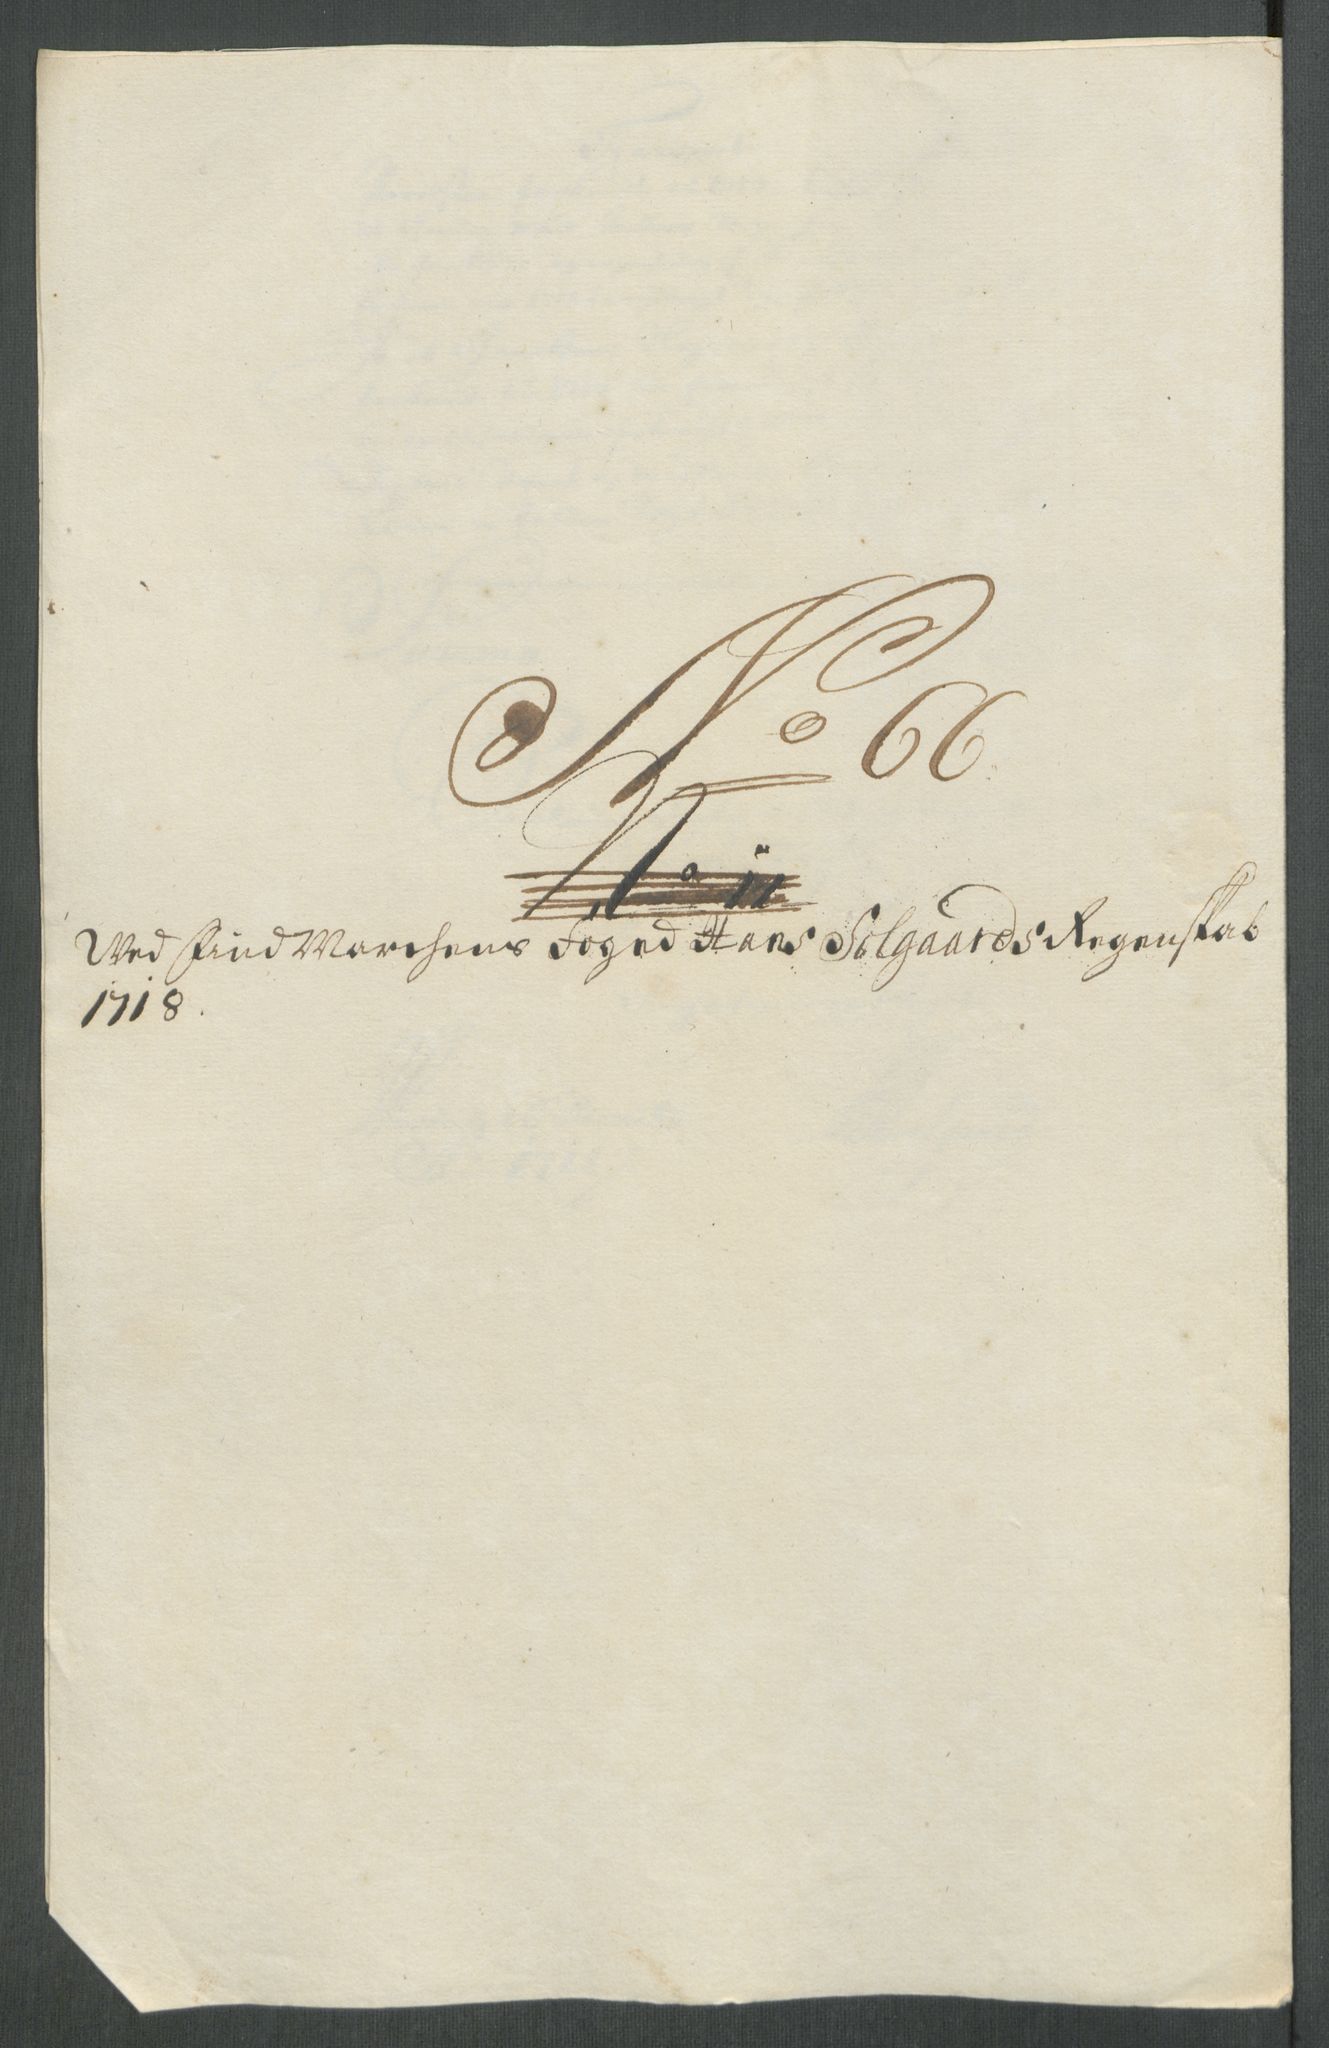 No 66
No 11
Wed Find Marchens Foged Hans Solgaards Regenskab
1718.